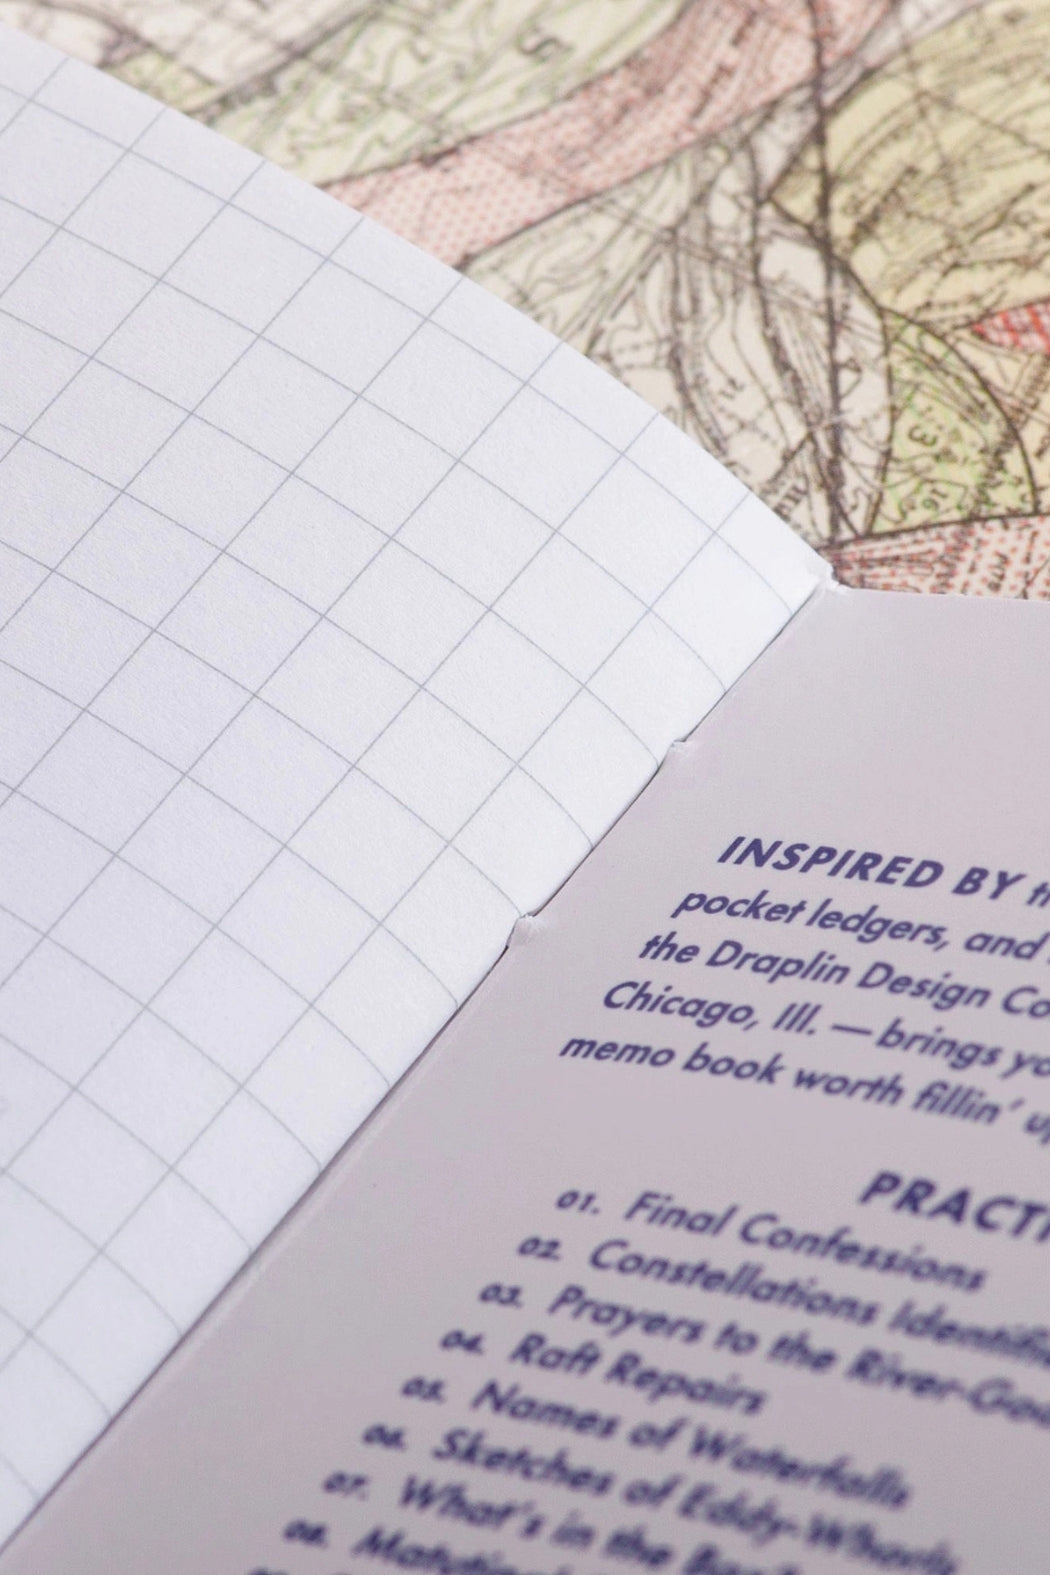 INSPIRED BY
pocket ledgers, and
the Draplin Design Co
Chicago, Ill. — brings yo
memo book worth fillin’ up
PRACTI
01. Final Confessions
02. Constellations Identifie
03. Prayers to the River-God
04. Raft Repairs
05. Names of Waterfalls
06. Sketches of Eddy-Whorls
07. What’s in the
08.